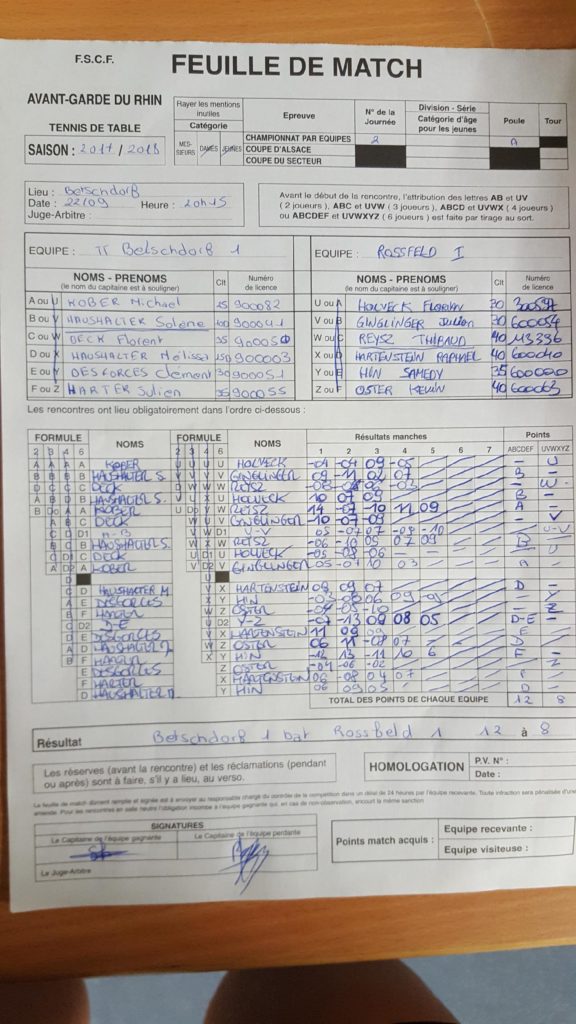 F.S.C.F.
FEUILLE DE MATCH
AVANT-GARDE DU RHIN
TENNIS DE TABLE
SAISON : 2017 / 2018
Rayer les mentions inutiles
Catégorie
MES-SIEURS DAMES JEUNES
Epreuve
N° de la Journée
Division - Série
Catégorie d'âge pour les jeunes
Poule
Tour
CHAMPIONNAT PAR EQUIPES 2 A
COUPE D'ALSACE
COUPE DU SECTEUR
Lieu : Betschdorf
Date : 22/09 Heure : 20h15
Juge-Arbitre :
Avant le début de la rencontre, l'attribution des lettres AB et UV
( 2 joueurs ), ABC et UVW ( 3 joueurs ), ABCD et UVWX ( 4 joueurs )
ou ABCDEF et UVWXYZ ( 6 joueurs ) est faite par tirage au sort.
EQUIPE : TT Betschdorf 1
EQUIPE : ROSSFELD I
NOMS - PRENOMS
(le nom du capitaine est à souligner)
Clt
Numéro de licence
NOMS - PRENOMS
(le nom du capitaine est à souligner)
Clt
Numéro de licence
A ou U KOBER Michael 900082
B ou V HAUSHALTER Solène 900041
C ou W DECK Florent 35
D ou X HAUSHALTER Mélissa 900003
E ou Y DESFORGES Clement 30 90051
F ou Z HARTER Julien 35 900055
U ou A HOLVECK Florian 30
V ou B GINGLINGER Julien 30 600054
W ou C REYSZ THIBAUD 40 113336
X ou D HARTENSTEIN RAPHAEL 40 600040
Y ou E HIN SAMEDY 35
Z ou F OSTER KEVIN 40
Les rencontres ont lieu obligatoirement dans l'ordre ci-dessous :
FORMULE
2 3 4 6
NOMS
FORMULE
2 3 4 6
NOMS
Résultats manches
1 2 3 4 5 6 7
Points
ABCDEF UVWXYZ
KOBER HOLVECK -04 -04 09 -05 - U
HAUSHALTER S. GINGLINGER 09 -11 02 07 B -
DECK REYSZ - W
HAUSHALTER S. HOLVECK 10 07 09 B -
KOBER REYSZ 14 -07 -10 11 09 A -
DECK GINGLINGER -10 -07 -09 - V
A-B U-V 05 -07 07 -08 -10 - U-V
HAUSHALTER S. REYSZ -06 -10 05 07 09 B -
DECK HOLVECK -05 -08 -06 - U
KOBER GINGLINGER 05 -07 10 03 A -
HAUSHALTER M. HARTENSTEIN 08 09 07 D -
DESFORGES HIN
HARTER OSTER -04 -05 -10 - Z
D-E Y-Z -07 -13 09 08 05 D-E -
DESFORGES HARTENSTEIN 11 09 09 E -
HAUSHALTER OSTER 06 11 -08 07 D
HARTER HIN -12 13 -11 10 6 F -
DESFORGES OSTER -04 -06 -02 - Z
HARTER HARTENSTEIN 06 -08 04 07 F -
HAUSHALTER HIN 06 09 05 D -
TOTAL DES POINTS DE CHAQUE EQUIPE 12 8
Résultat Betschdorf 1 bat Rossfeld 1 12 à 8
Les réserves (avant la rencontre) et les réclamations (pendant
ou après) sont à faire, s'il y a lieu, au verso.
HOMOLOGATION
P.V. N° :
Date :
La feuille de match dûment remplie et signée est à envoyer au responsable chargé du contrôle de la compétition dans un délai de 24 heures par l'équipe recevante. Toute infraction sera pénalisée d'une
amende. Pour les rencontres en salle neutre l'obligation incombe à l'équipe gagnante qui, en cas de non-observation, encourt la même sanction
SIGNATURES
Le Capitaine de l'équipe gagnante
Le Capitaine de l'équipe perdante
Le Juge-Arbitre
Points match acquis :
Equipe recevante :
Equipe visiteuse :